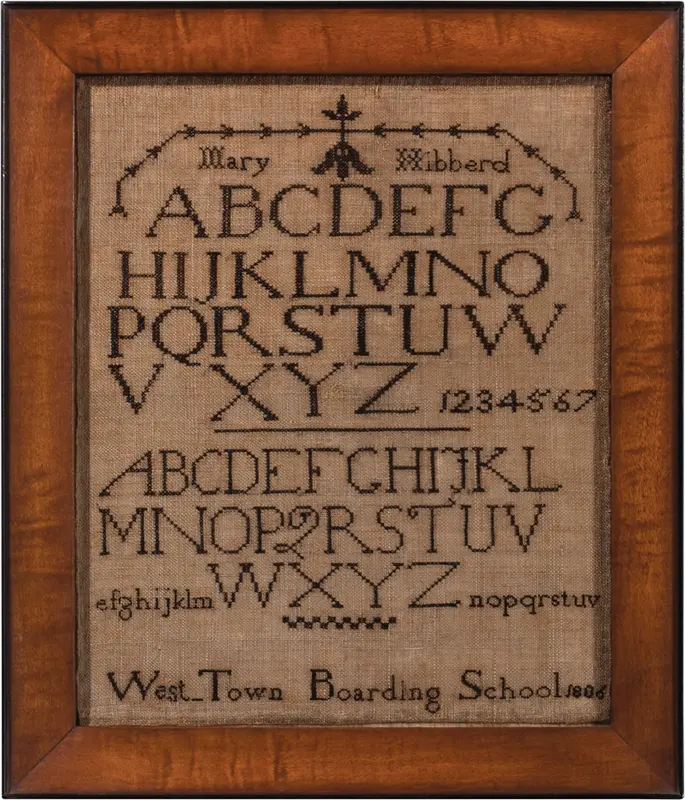 Mary Hibberd
ABCDEFG
HIJKLMNO
PQRSTUW
VXYZ 1234567
ABCDEFGHIJKL
MNOPQRSTUV
efghijklm WXYZ nopqrstuv
West-Town Boarding School 1806